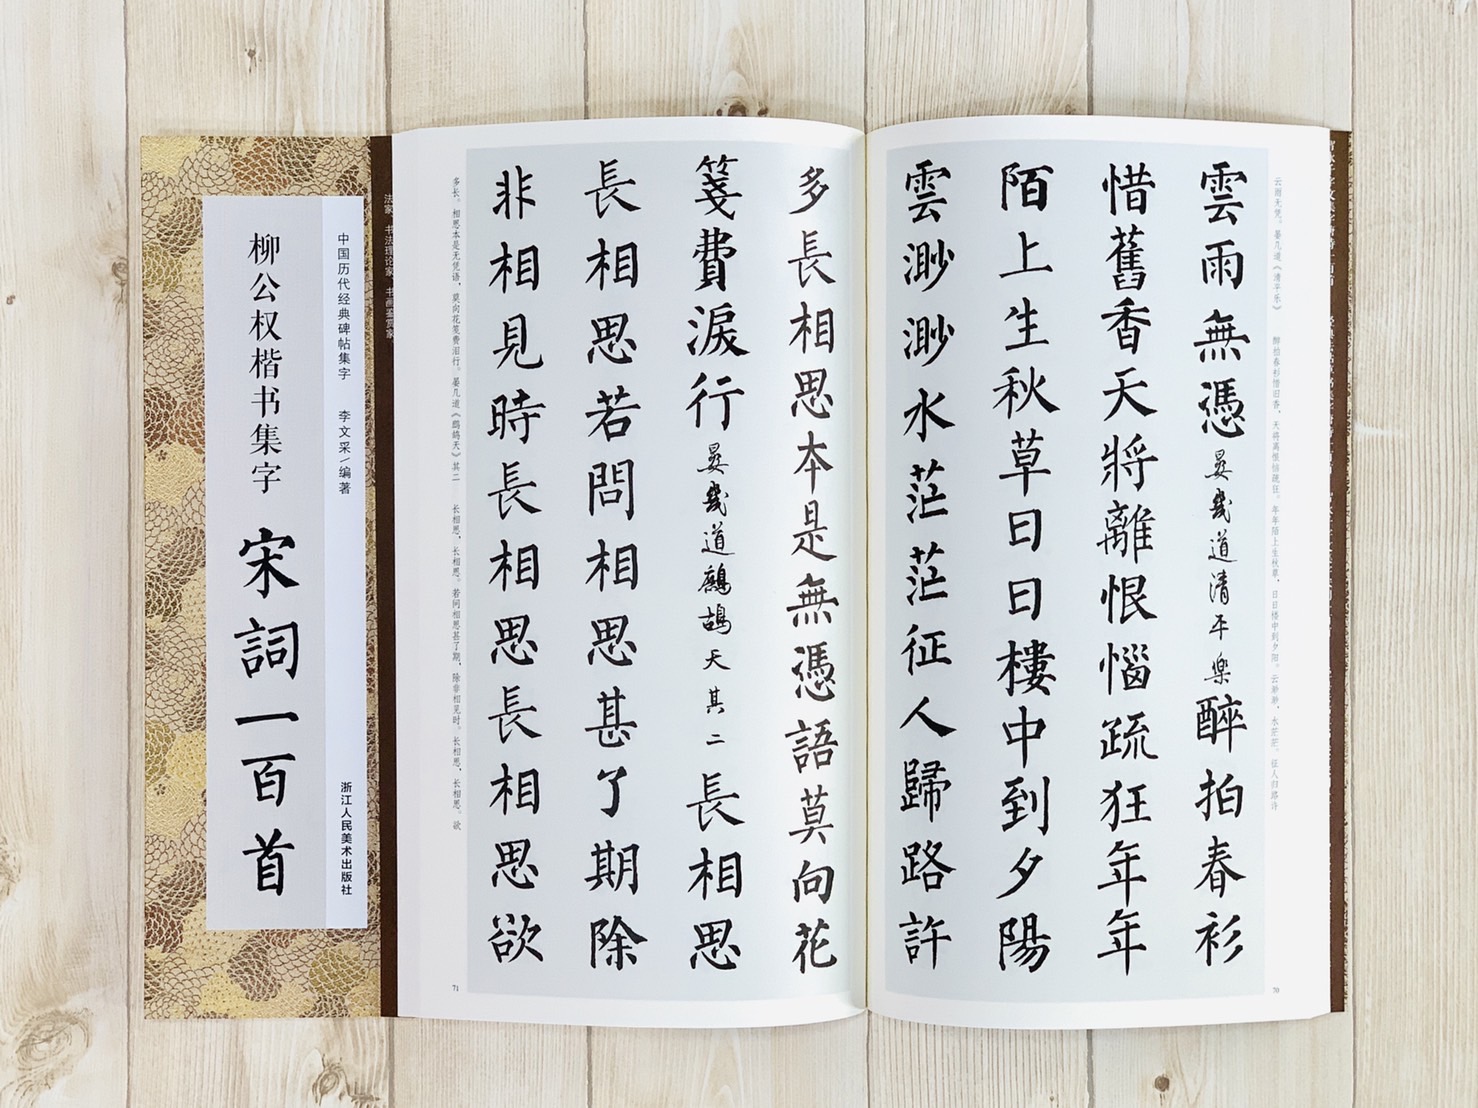 雲雨無憑晏幾道清平樂醉拍春衫
惜舊香天將離恨惱疏狂年年
陌上生秋草日日樓中到夕陽
雲渺渺水茫茫征人歸路許
多長相思本是無憑語莫向花
箋費淚行晏幾道鷓鴣天其二長相思
長相思若問相思甚了期除
非相見時長相思長相思欲
云雨无凭。晏几道《清平乐》 醉拍春衫惜旧香，天将离恨恼疏狂。年年陌上生秋草，日日楼中到夕阳。云渺渺，水茫茫。征人归路许
70
多长。相思本是无凭语，莫向花笺费泪行。晏几道《鹧鸪天》其二 长相思，长相思。若问相思甚了期，除非相见时。长相思，长相思。欲
71
法家 书法理论家 书画鉴赏家
中国历代经典碑帖集字 李文采/编著
浙江人民美术出版社
柳公权楷书集字
宋詞一百首